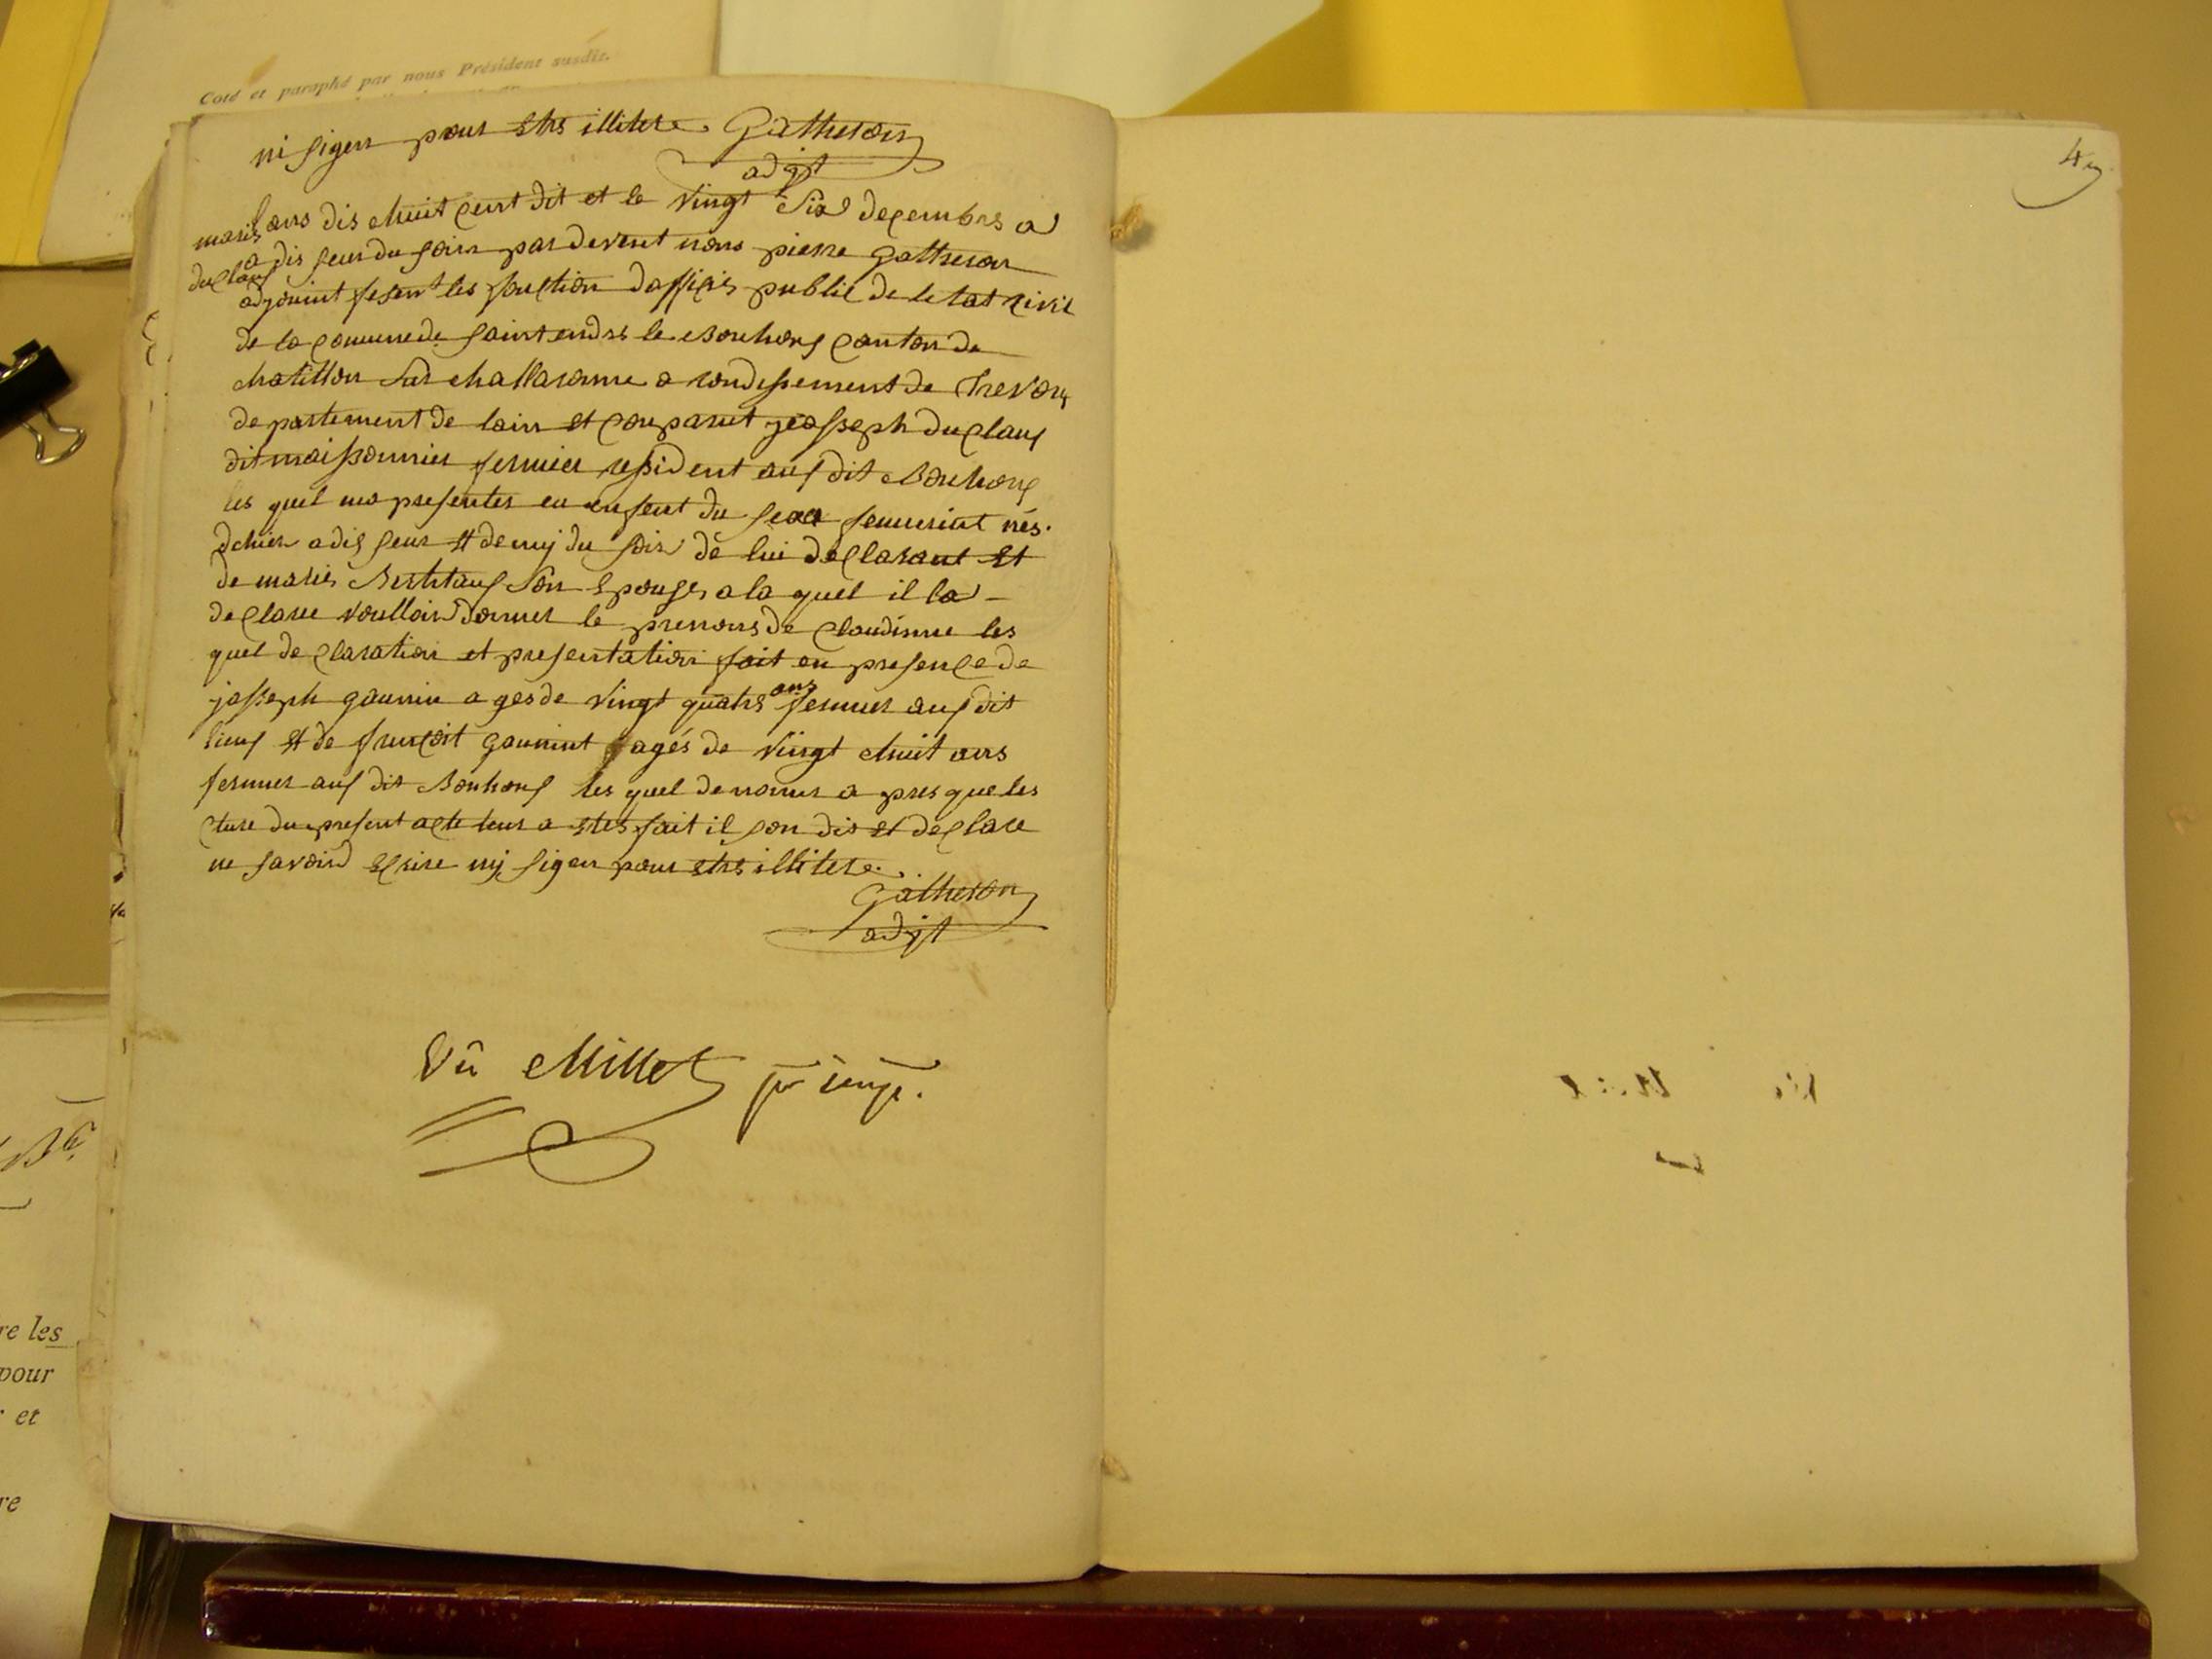 Coté et paraphé par nous Président susdit.
ni signer pour etre illitere. Gatheron
adjt
marie
duclaux
Lans dis chuit cent dit et le vingt Six decembre a
a dis heur du soir par devent nous pierre gatheron
adjouint fesent les fonction dofficié public de letat civil
de la comune de saint andre le Bouhoux canton de
chatillon Sur challaronne arondissement de Trevoux
departement de lain et comparut jeosseph duclaux
dit maissonnier fermier ressident aux dit Bouhoux
les quel ma presenter en enfent du sexe femminint nés.
dehier a dix heur et demij du soir de lui declarant et
de marie Berthaux Son Epouse a la quel il la
declaree voulloird donner le prenons de claudinne les
quel declaration et presentation fait en presence de
josseph gaunin ages de vingt quatre ans fermier aux dit
lieux et de françoit gaunint agés de vingt chuit ans
fermier aux dit Bouhoux les quel de nomer apres que lec
cture du present acte leur a etes fait il son dis et declare
ne savoird ecrire nij signer pour etre illitere.
Gatheron
adjt
Vû Millet
4
re les
pour
et
re